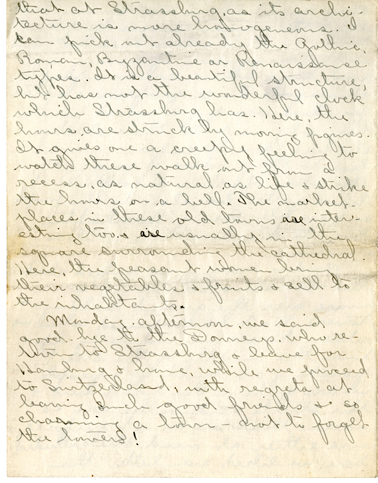 that at Strassburg, as its archi-
tecture is more homogeneous. I
can pick out already the Gothic,
Roman, Byzantine or Renaissance
types. It is a beautiful structure,
but has not the wonderful clock
which Strassburg has. Here, the
hours, are struck by moving figures.
It gives one a creepy feeling to
watch these walk out from a
recess, as natural as life & strike
the hours on a bell. The market-
places in these old towns are inter-
esting too, & are usually in the
square surrounding the cathedral.
Here, the peasant women bring
their vegetables & fruits & sell to
the inhabitants.
Monday afternoon, we said
good-bye to the, who re-
turn to Strassburg & leave for
Hamburg & home, while we proceed
to Switzerland, with regrets at
leaving such good friends & so
charming a town – not to forget
the towers!